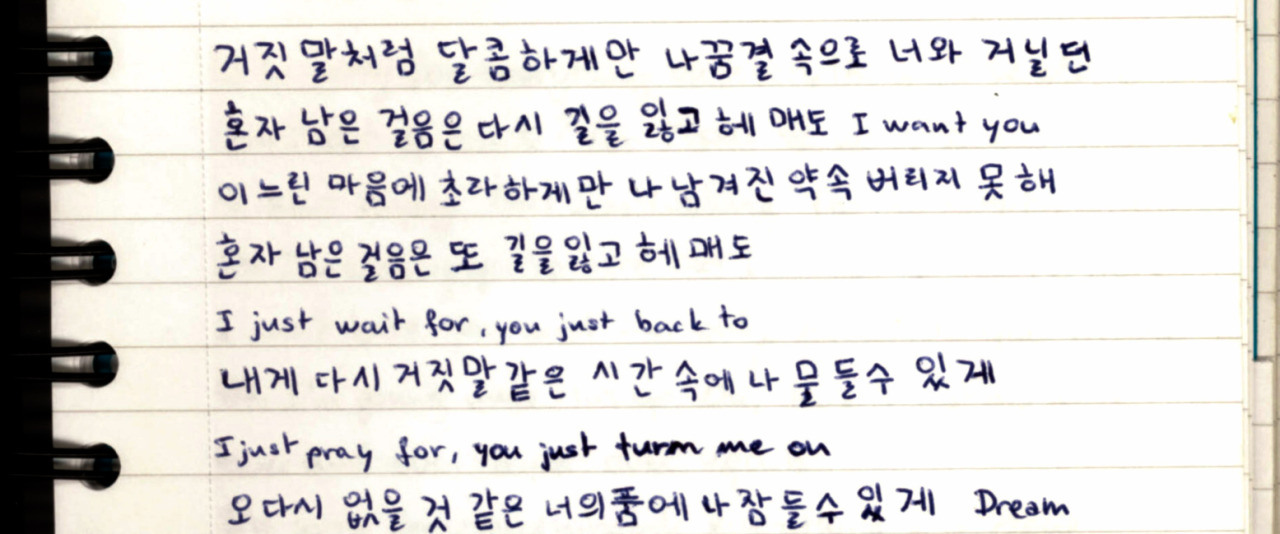 거짓말처럼 달콤하게만 나 꿈결 속으로 너와 거닐던
혼자 남은 걸음은 다시 길을 잃고 헤매도 I want you
이 느린 마음에 초라하게만 나 남겨진 약속 버리지 못해
혼자 남은 걸음은 또 길을 잃고 헤매도
I just wait for, you just back to
내게 다시 거짓말 같은 시간 속에 나 물들 수 있게
I just pray for, you just turn me on
오 다시 없을 것 같은 너의 품에 나 잠들 수 있게 Dream